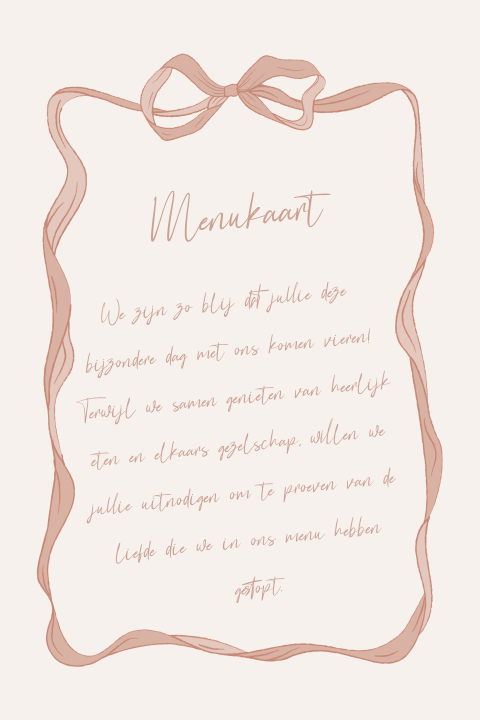 Menukaart
We zijn zo blij dat jullie deze
bijzondere dag met ons komen vieren!
Terwijl we samen genieten van heerlijk
eten en elkaars gezelschap, willen we
jullie uitnodigen om te proeven van de
liefde die we in ons menu hebben
gestopt.